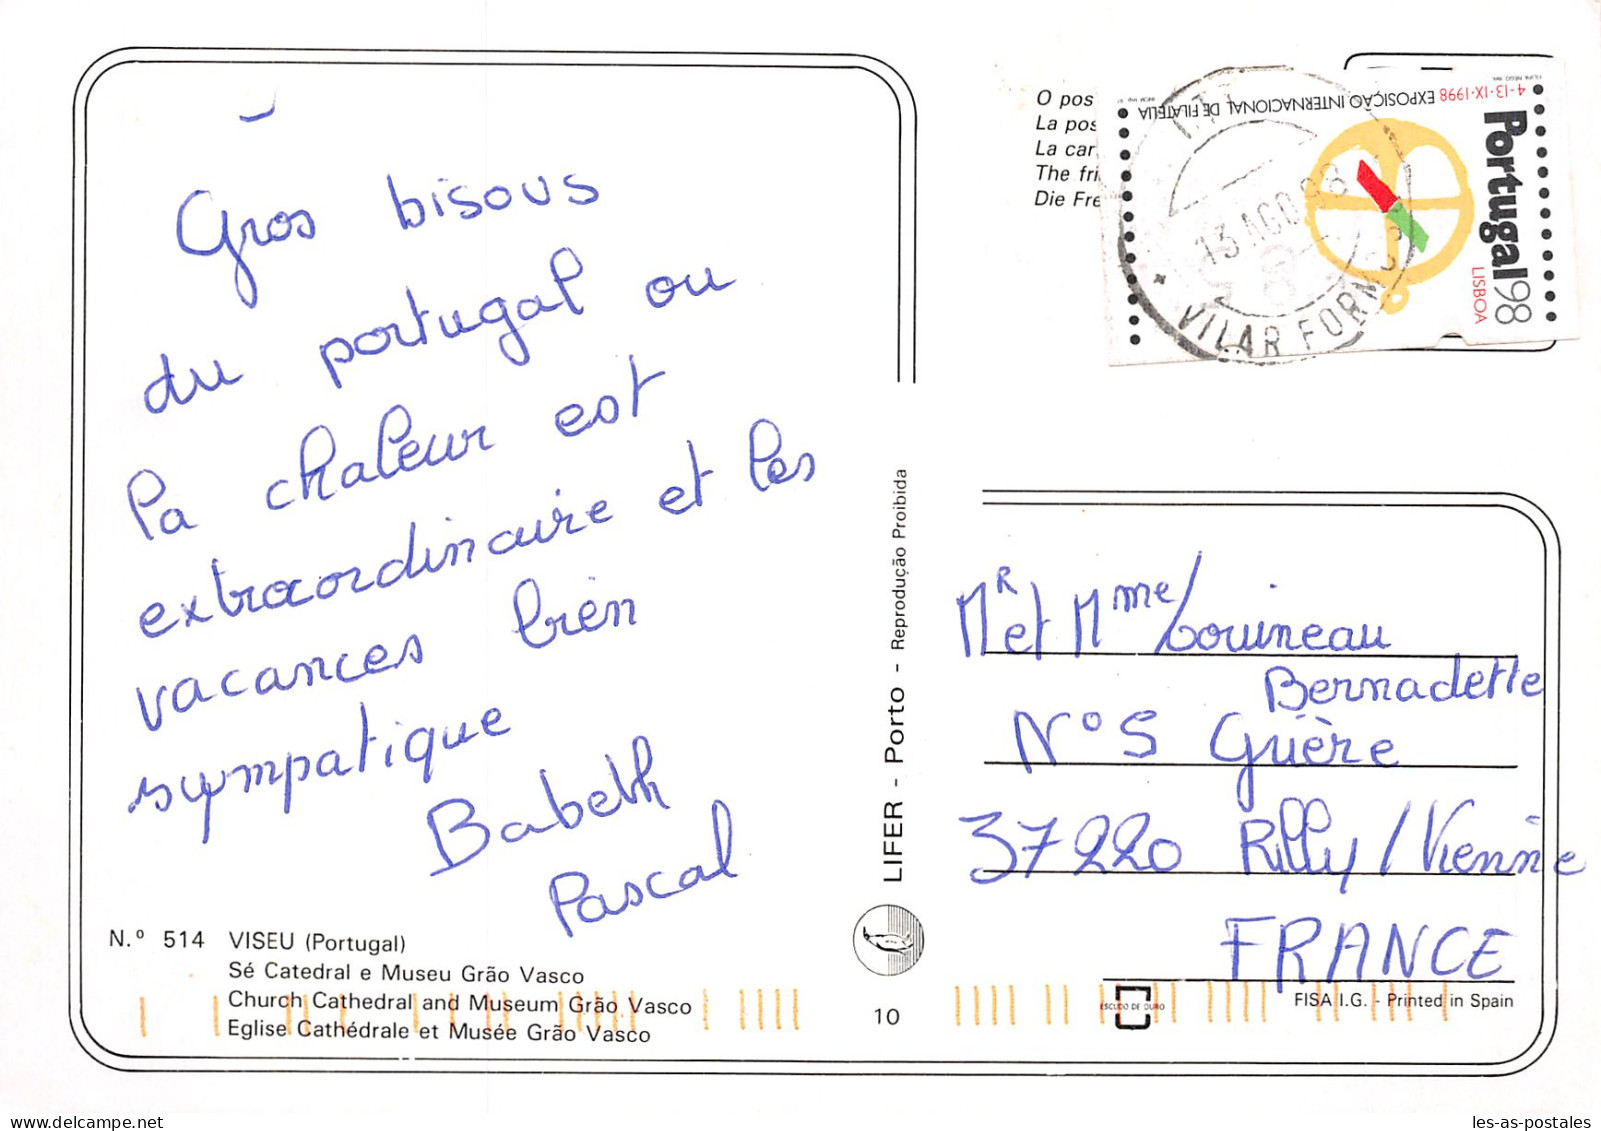 Gros bisous
du portugal ou
la chaleur est
extraordinaire et les
vacances bien
sympatique
Babeth
Pascal
N.º 514 VISEU (Portugal)
Sé Catedral e Museu Grão Vasco
Church Cathedral and Museum Grão Vasco
Eglise Cathédrale et Musée Grão Vasco
LIFER - Porto - Reprodução Proibida
10
O pos
La pos
La car
The fri
Die Fre
4-13·IX·1998 EXPOSIÇÃO INTERNACIONAL DE FILATELIA
Portugal98
LISBOA
13 AGO 98
VILAR FORM
Mr et Mme Louineau
Bernadette
N° 5 Grière
37220 Rilly / Vienne
FRANCE
ESCUDO DE OURO
FISA I.G. - Printed in Spain
les-as-postales